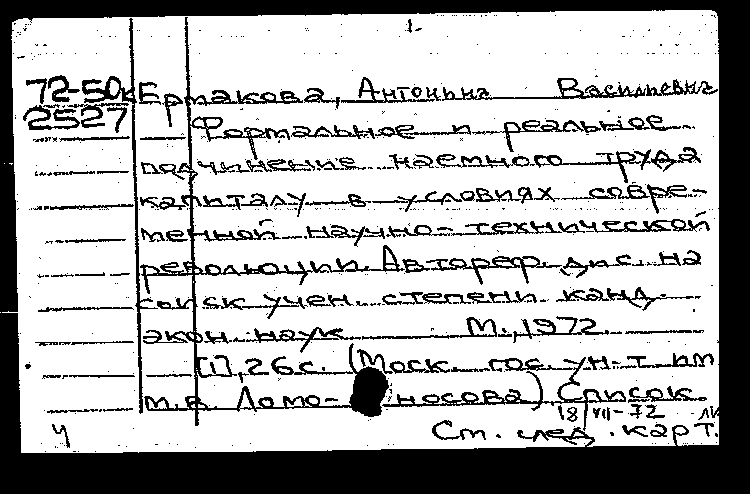 1.
72-50к Ермакова, Антонина Васильевна
2527 Формальное и реальное
подчинение наемного труда
капиталу в условиях совре-
менной научно-технической
революции. Автореф. дис. на
соиск учен. степени канд.
экон. наук М., 1972.
[1], 26 с. (Моск. гос. ун-т им
М.В. Ломоносова) Список.
18/VII-72
ч См. след. карт.